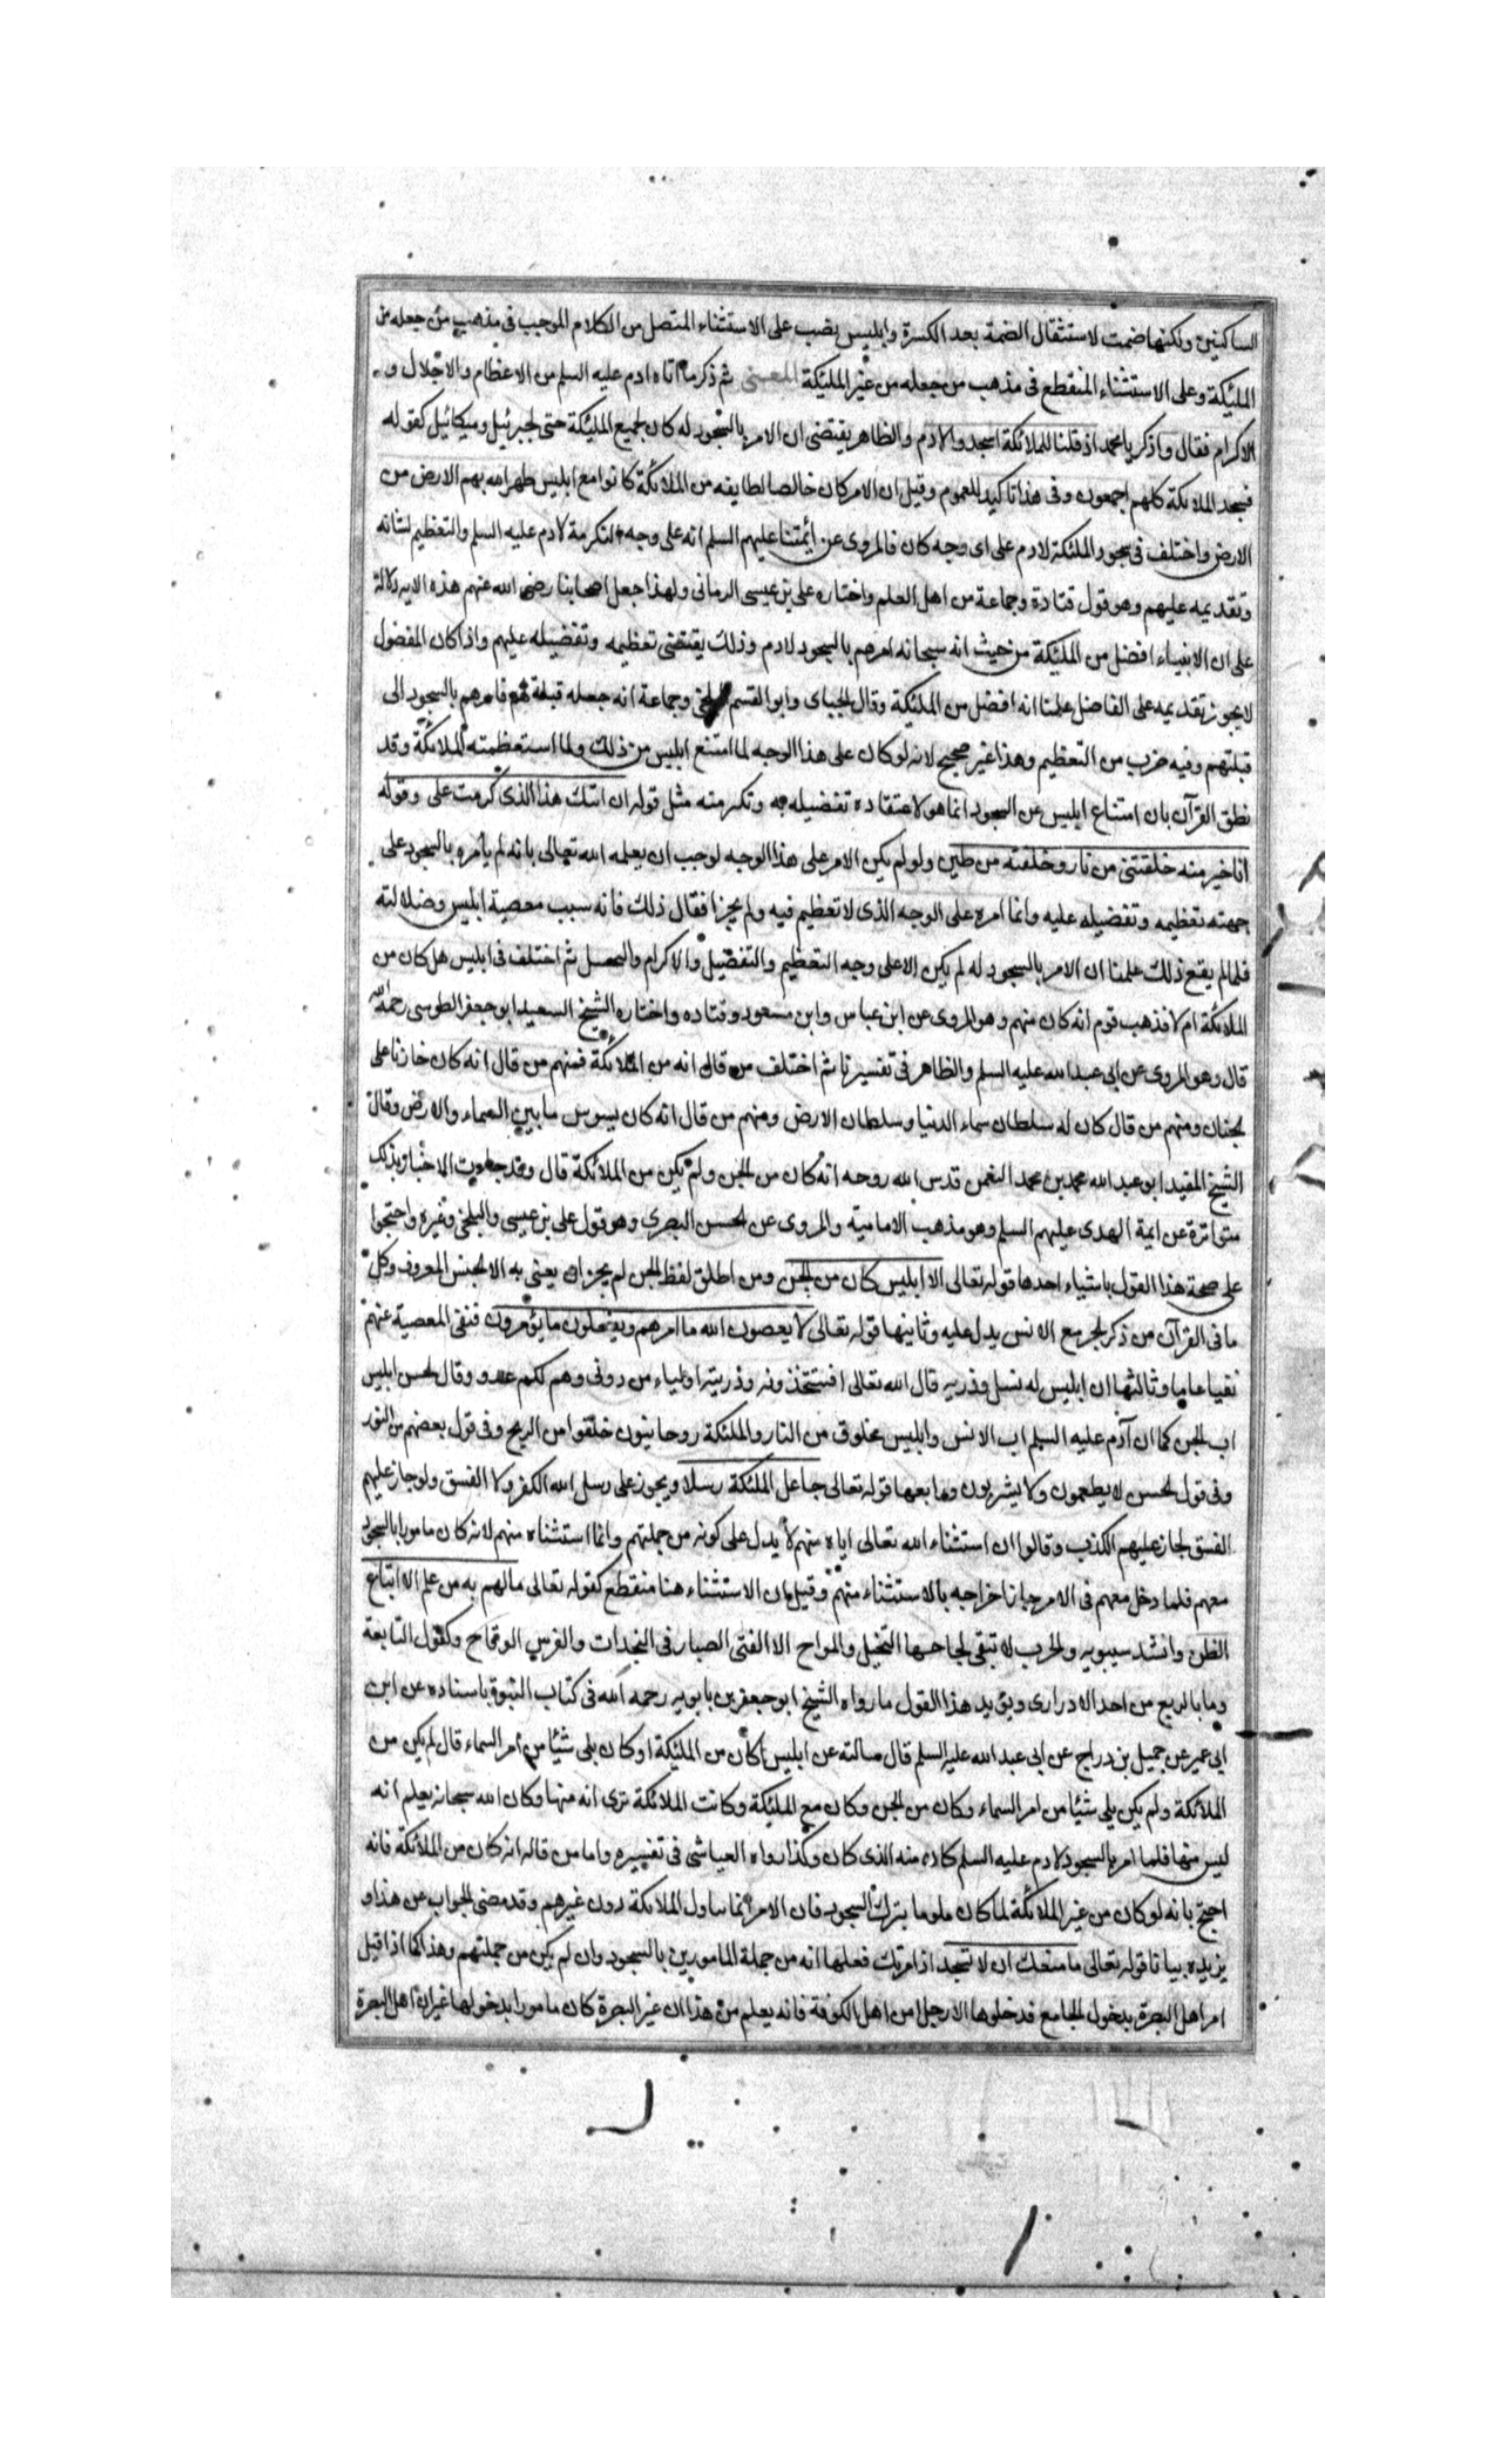 الساكنين ولكنها ضمت لاستثقال الضمة بعد الكسرة وابليس نصب على الاستثناء المتصل من الكلام الموجب فى مذهب من جعله من
الملئكة وعلى الاستثناء المنقطع فى مذهب من جعله من غير الملئكة المعنى ثم ذكر ما اتاه ادم عليه السلم من الاعظام والاجلال و
الاكرام فقال واذكر يا محمد اذ قلنا للملائكة اسجدوا لادم والظاهر يقتضى ان الامر بالسجود له كان لجميع الملئكة حتى لجبرئيل وميكائيل كقوله
فسجد الملائكة كلهم اجمعون وفى هذا تاكيد للعموم وقيل ان الامر كان خالصا لطايفه من الملائكة كانوا مع ابليس طهر الله بهم الارض من
الارض واختلف فى سجود الملئكة لادم على اى وجه كان فالمروى عن ائمتنا عليهم السلم انه على وجه التكرمة لادم عليه السلم والتعظيم لشانه
وتقديمه عليهم وهو قول قتادة وجماعة من اهل العلم واختاره على بن عيسى الرمانى ولهذا جعل اصحابنا رضى الله عنهم هذه الايه دلالة
على ان الانبياء افضل من الملئكة من حيث انه سبحانه امرهم بالسجود لادم وذلك يقتضى تعظيمه وتفضيله عليهم واذا كان المفضول
لا يجوز تقديمه على الفاضل علمنا انه افضل من الملئكة وقال الجباى وابو القسم البلخى وجماعة انه جعله قبلة لهم فامرهم بالسجود الى
قبلتهم وفيه ضرب من التعظيم وهذا غير صحيح لانه لو كان على هذا الوجه لما امتنع ابليس من ذلك ولما استعظمته الملائكة وقد
نطق القرآن بان امتناع ابليس عن السجود انما هو لاعتقاده تفضيله به وتكرمته مثل قوله ارايتك هذا الذى كرمت على وقوله
انا خير منه خلقتنى من نار وخلقته من طين ولو لم يكن الامر على هذا الوجه لوجب ان يعلمه الله تعالى بانه لم يأمره بالسجود على
جهته تعظيمه وتفضيله عليه وانما امره على الوجه الذى لا تعظيم فيه ولم يجز اغفال ذلك فانه سبب معصية ابليس وضلالته
فلما لم يقع ذلك علمنا ان الامر بالسجود له لم يكن الا على وجه التعظيم والتفضيل والاكرام والتبجيل ثم اختلف فى ابليس هل كان من
الملائكة ام لا فذهب قوم انه كان منهم وهو المروى عن ابن عباس وابن مسعود وقتاده واختاره الشيخ السعيد ابو جعفر الطوسى رحمه الله
قال وهو المروى عن ابى عبد الله عليه السلم والظاهر فى تفسيرنا ثم اختلف من قال انه من الملائكة فمنهم من قال انه كان خازنا على
لجنان ومنهم من قال كان له سلطان سماء الدنيا وسلطان الارض ومنهم من قال انه كان يسوس ما بين السماء والارض وقال
الشيخ المفيد ابو عبد الله محمد بن محمد النعمن قدس الله روحه انه كان من الجن ولم يكن من الملائكة قال وقد جاءت الاخبار بذلك
متواترة عن ايمة الهدى عليهم السلم وهو مذهب الامامية والمروى عن الحسن البصرى وهو قول على بن عيسى والبلخى وغيره واحتجوا
على صحة هذا القول باشياء احدها قوله تعالى الا ابليس كان من الجن ومن اطلق لفظ الجن لم يجز ان يعنى به الا الجنس المعروف وكل
ما فى القرآن من ذكر الجن مع الانس يدل عليه وثانيها قوله تعالى لا يعصون الله ما امرهم ويفعلون ما يؤمرون فنفى المعصية عنهم
نفيا عاما وثالثها ان ابليس له نسل وذريه قال الله تعالى افتتخذونه وذريته اولياء من دونى وهم لكم عدو وقال الحسن ابليس
اب الجن كما ان آدم عليه السلم اب الانس وابليس مخلوق من النار والملئكة روحانيون خلقوا من الريح وفى قول بعضهم من النور
وفى قول الحسن لا يطعمون ولا يشربون ورابعها قوله تعالى جاعل الملئكة رسلا ويجوز على رسل الله الكفر ولا الفسق ولو جاز عليهم
الفسق لجاز عليهم الكذب وقالوا ان استثناء الله تعالى اياه منهم لا يدل على كونه من جملتهم وانما استثناه منهم لانه كان مامورا بالسجود
معهم فلما دخل معهم فى الامر جاز اخراجه بالاستثناء منهم وقيل ان الاستثناء هنا منقطع كقوله تعالى مالهم به من علم الا اتباع
الظن وانشد سيبويه والحرب لا تبقى لجاحمها التخيل والمراح الا الفتى الصبار فى النجدات والفرس الوقاح وكقول النابغة
وما بالربع من احد الا دوارى ويؤيد هذا القول ما رواه الشيخ ابو جعفر بن بابويه رحمه الله فى كتاب النبوة باسناده عن ابن
ابى عمير عن جميل بن دراج عن ابى عبد الله عليه السلم قال سالته عن ابليس اكان من الملئكة او كان يلى شيئا من امر السماء قال لم يكن من
الملائكة ولم يكن يلى شيئا من امر السماء وكان من الجن وكان مع الملئكة وكانت الملائكة ترى انه منها وكان الله سبحانه يعلم انه
ليس منها فلما امره بالسجود لادم عليه السلم كان منه الذى كان وكذا رواه العياشى فى تفسيره واما من قال انه كان من الملائكة فانه
احتج بانه لو كان من غير الملائكة لما كان ملوما بترك السجود فان الامر انما تناول الملائكة دون غيرهم وقد مضى الجواب عن هذا و
يزيده بيانا قوله تعالى ما منعك ان لا تسجد اذ امرتك فعلمنا انه من جملة المامورين بالسجود وان لم يكن من جملتهم وهذا كما اذا قيل
امر اهل البصرة بدخول الجامع فدخلوها الا رجلا من اهل الكوفة فانه يعلم من هذا ان غير البصرة كان مامورا بدخولها غير ان اهل البصرة